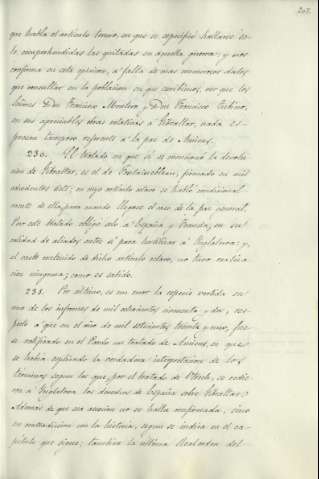 203.
que habla el artículo tercero, en que se especificó hallarse so-
lo comprehendidas las quitadas en aquella guerra; y nos
confirma en este opinion, a falta de mas numerosos datos
que consultar en la poblacion en que escribimos, ver que los
Señores Don Francisco Montero, y Don Francisco
en sus apreciables obras relativas a Gibraltar, nada es-
presan tampoco referente a la paz de Amiens.
230. El tratado en que si se mencionó la devolu-
cion de Gibraltar, es el de Fontainebleau, firmado en mil
ochocientos siete; en cuyo artículo octavo se habló condicional
mente de ella, para cuando llegase el caso de la paz general.
Por este tratado obligó solo a España y Francia, en su
calidad de aliadas entre sí para hostilizar a Inglaterra; y,
el cual contenido de dicho artículo octavo, no tuvo realiza-
cion ninguna; como es sabido.
231. Por último, es un error la especie vertida en
uno de los informes de mil ochocientos sesenta y dos, res-
pecto a que en el año de mil setecientos treinta y nueve, fue-
se ratificado en el Pardo un tratado de Amiens, en que
se habia esplicado la verdadera interpretacion de los
terminos segun los que, por el tratado de Utrech, se cedie-
ron a Inglaterra los derechos de España sobre Gibraltar.
Ademas de que esa asercion no se halla confirmada, sino
en contradiccion con la historia, segun se indica en el ca-
pítulo que sigue; tambien la última Real orden del